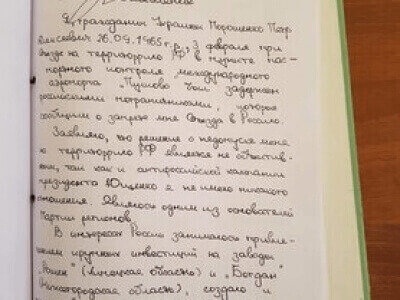 Я, гражданин Украины Порошенко Петр
Алексеевич 26.09.1965 г.р., 3 февраля при
въезде на территорию РФ в пункте пас-
портного контроля международного
аэропорта "Пулково" был задержан
российскими пограничниками, которые
сообщили о запрете мне въезда в Россию.
Заявляю, что решение о недопуске меня
на территорию РФ является не объектив-
ным, так как к антироссийской кампании
президента Ющенко я не имею никакого
отношения. Являюсь одним из основателей
Партии регионов.
В интересах России занимаюсь привле-
чением крупных инвестиций на заводы
"Рошен" (Липецкая область) и "Богдан"
(Нижегородская область), создаю и